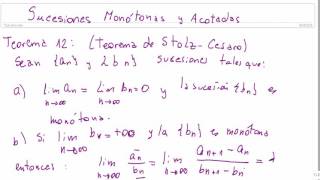 Sucesiones Monótonas y Acotadas
Teorema 12: (Teorema de Stolz-Cesaro)
Sean {an} y {bn} sucesiones tales que:
a) lim n→∞ an = lim n→∞ bn = 0 y la sucesión {bn} es
monótona.
b) Si lim n→∞ bn = +∞ y la {bn} es monótona
entonces: lim n→∞ an/bn = lim n→∞ (an+1 - an)/(bn+1 - bn) = λ